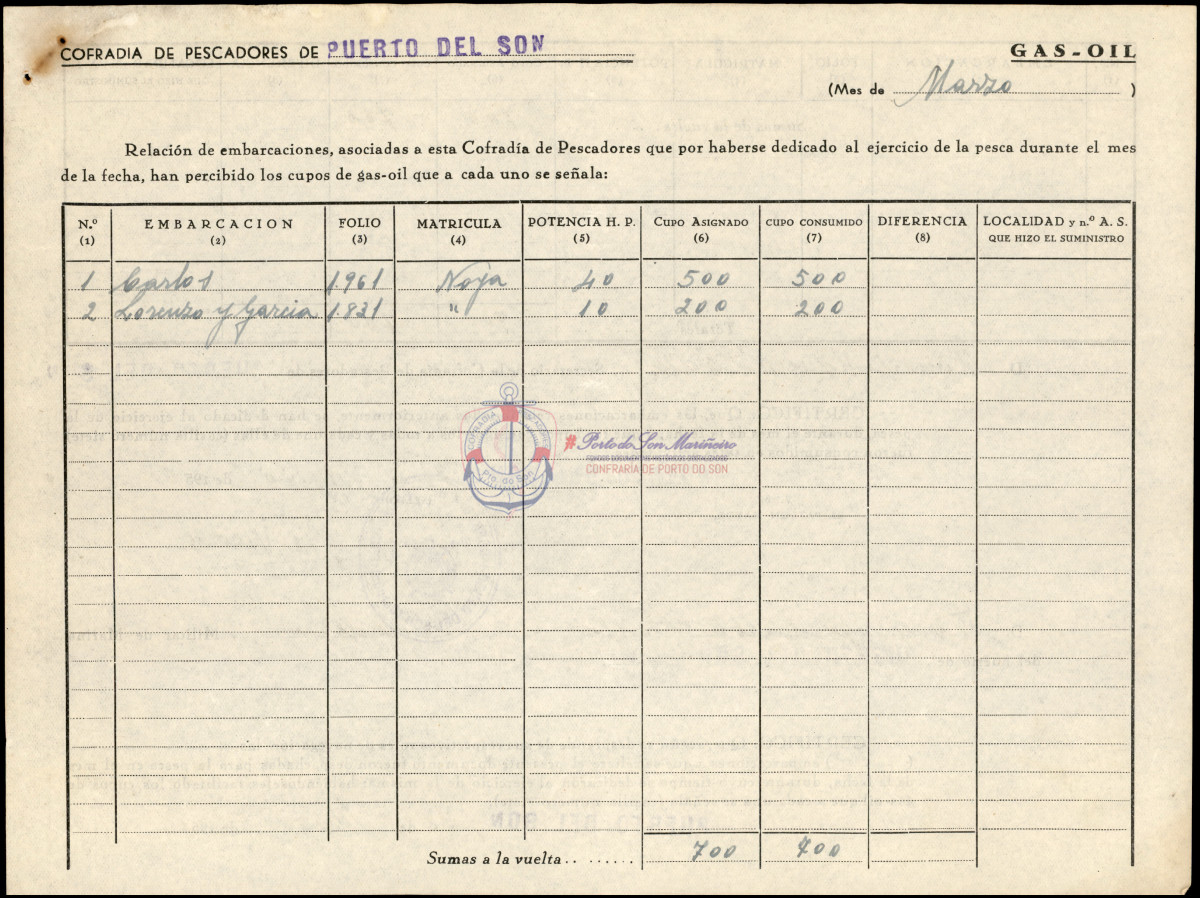 COFRADIA DE PESCADORES DE PUERTO DEL SON
GAS-OIL
(Mes de Marzo )
Relación de embarcaciones, asociadas a esta Cofradía de Pescadores que por haberse dedicado al ejercicio de la pesca durante el mes
de la fecha, han percibido los cupos de gas-oil que a cada uno se señala:
N.º EMBARCACION FOLIO MATRICULA POTENCIA H. P. CUPO ASIGNADO CUPO CONSUMIDO DIFERENCIA LOCALIDAD y n.º A. S.
(1) (2) (3) (4) (5) (6) (7) (8) QUE HIZO EL SUMINISTRO
1 Carlos 1.961 Noya 40 500 500
2 Lorenzo y Garcia 1.821 " 10 200 200
COFRADIA PESCADORES
Pto. do Son
#Porto do Son Mariñeiro
FONDOS DOCUMENTAIS HISTÓRICOS DIXITALIZADOS
CONFRARÍA DE PORTO DO SON
Sumas a la vuelta........ 700 700